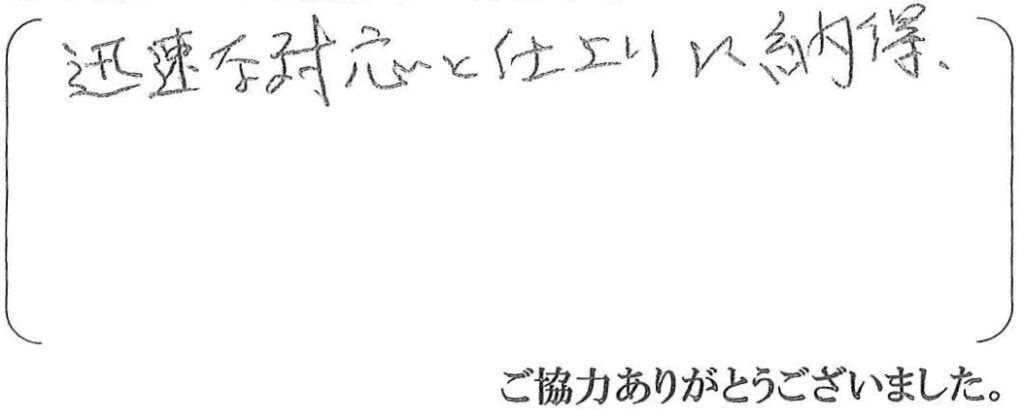 迅速な対応と仕上りに納得、
ご協力ありがとうございました。